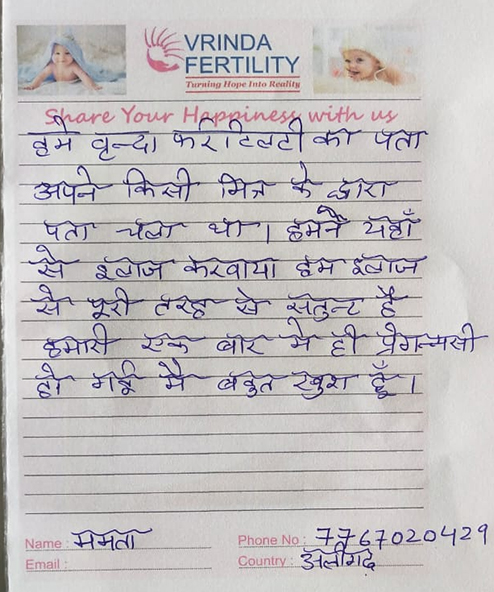 VRINDA
FERTILITY
Turning Hope Into Reality
Share Your Happiness with us
हमे वृन्दा फर्टिलिटी का पता
अपने किसी मित्र के द्वारा
पता चला था। हमनें यहाँ
से इलाज करवाया हम इलाज
से पूरी तरह से सतुन्ट है
हमारी एक बार मे ही प्रेगन्मसी
हो गई मै बहुत खुश हूँ।
Name : ममता
Phone No : 7767020429
Email :
Country : अलीगढ